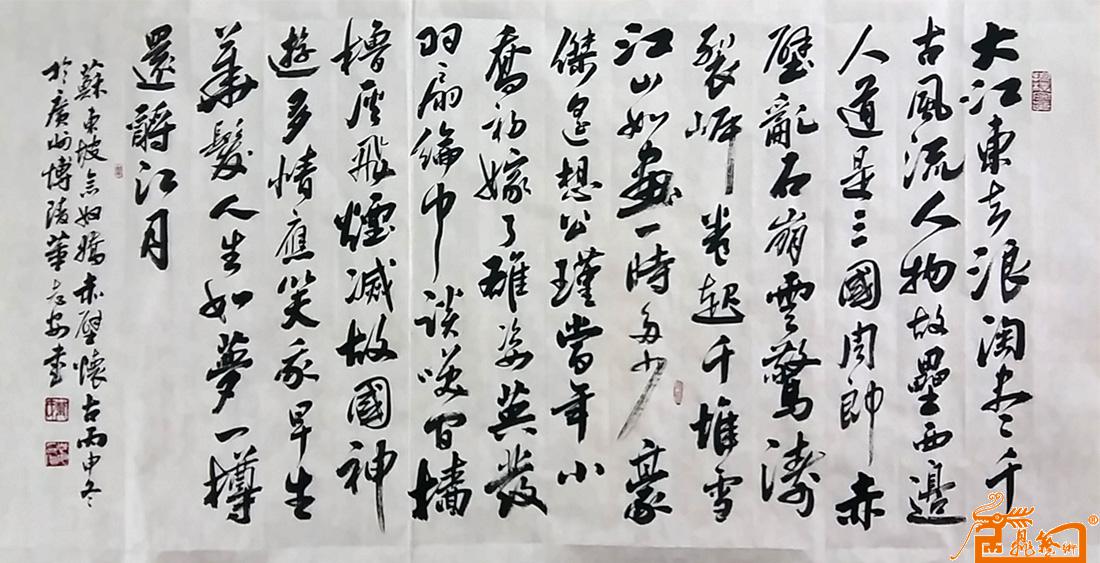 大江東去浪淘盡千
古風流人物故壘西邊
人道是三國周郎赤
壁亂石崩雲驚濤
裂岸卷起千堆雪
江山如畫一時多少豪
傑遙想公瑾當年小
喬初嫁了雄姿英發
羽扇綸巾談笑間檣
櫓灰飛煙滅故國神
遊多情應笑我早生
華髮人生如夢一樽
還酹江月
蘇東坡念奴嬌赤壁懷古丙申冬
於廣州博陵書